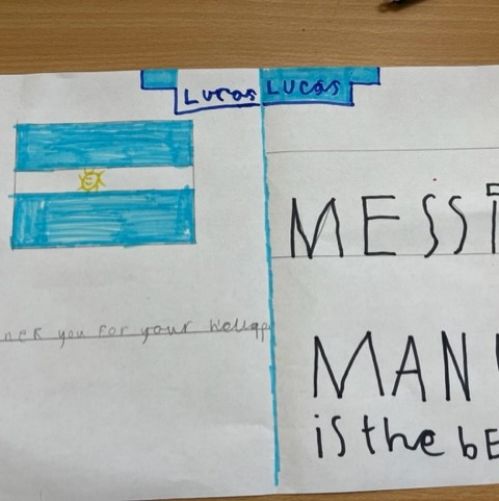 Lucas Lucas
MESSI
you for your
MAN
is the be